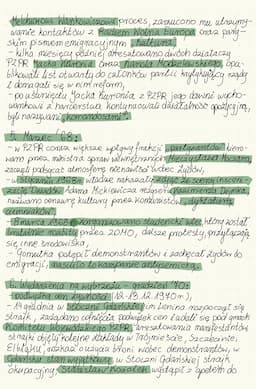 Melchiorowi Wańkowiczowi proces, zarzucono mu utrzymy-
wanie kontaktów z Radiem Wolna Europa oraz pary-
skim pismem emigracyjnym „Kultura”
- kilka miesięcy później aresztowano dwóch działaczy
PZPR Jacka Kuronia oraz Karola Modzelewskiego, opu-
blikowali List otwarty do członków partii krytykujący rządy
i domagali się w nim reform,
- po usunięciu Jacka Kuronia z PZPR jego dawni wycho-
wankowie z harcerstwa, kontynuowali działalność opozycyjną,
byli nazywani „komandosami”.
5. Marzec '68:
- w PZPR coraz większe wpływy frakcji partyzantów kiero-
wanej przez ministra spraw wewnętrznych Mieczysława Moczara,
zaczęli podsycać atmosferę nienawiści wobec Żydów,
- w styczniu 1968 r. władze nakazały zdjąć ze sceny inscen-
izację Dziadów Adama Mickiewicza reżyserii Kazimierza Dejmka,
nazwano cenzurę kultury przez komunistów „dyktaturą
ciemniaków”,
- 8 marca 1968 r. zorganizowano studencki wiec, który został
brutalnie rozbity przez ZOMO, dalsze protesty, przyłączają
się inne środowiska,
- Gomułka potępił demonstrantów i zachęcał Żydów do
emigracji,
6. Wydarzenia na wybrzeżu - grudzień '70:
- podwyżka cen żywności (12-13.12.1970 r.),
- 14 grudnia w Stoczni Gdańskiej im. Lenina rozpoczął się
strajk, zażądano cofnięcia podwyżek cen i udali się pod gmach
Komitetu Wojewódzkiego PZPR, aresztowania manifestantów
strajki objęły kolejne zakłady w Trójmieście, Szczecinie,
Elblągu, władza użyła broni wobec demonstrantów, w
Gdańsku stan wyjątkowy, w Stoczni Gdańskiej strajk
okupacyjny, Stanisław Kociołek wystąpił z apelem do